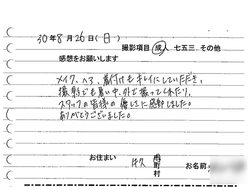 30年8月26日(日)
撮影項目 成人 七五三 その他
感想をお願いします
メイク、ヘア、着付けもキレイにしていただき、
撮影でも暑い中、外で撮ってくれたり、
スタッフの皆様の優しさに感謝しました。
ありがとうございました。
お住まい 牛久 市町村 お名前